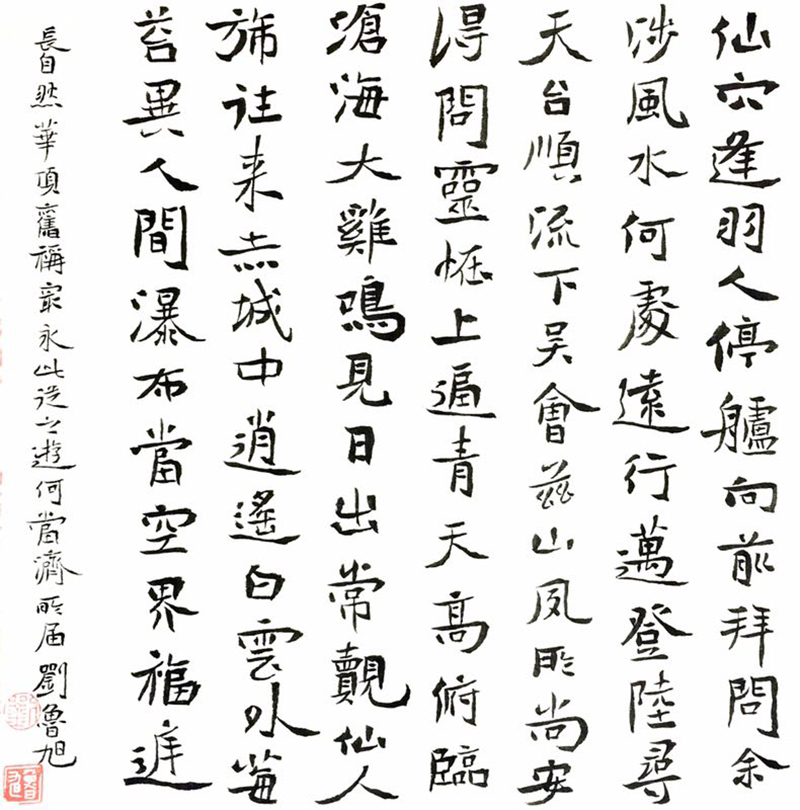 仙穴逢羽人停艫向前拜問余
涉風水何處遠行邁登陸尋
天台順流下吳會茲山夙所尚安
得問靈恠上逼青天高俯臨
滄海大雞鳴見日出常覿仙人
旆往来赤城中逍遙白雲外莓
苔異人間瀑布當空界福庭
長自然華頂舊稱最永此從之遊何當濟所届 劉魯旭